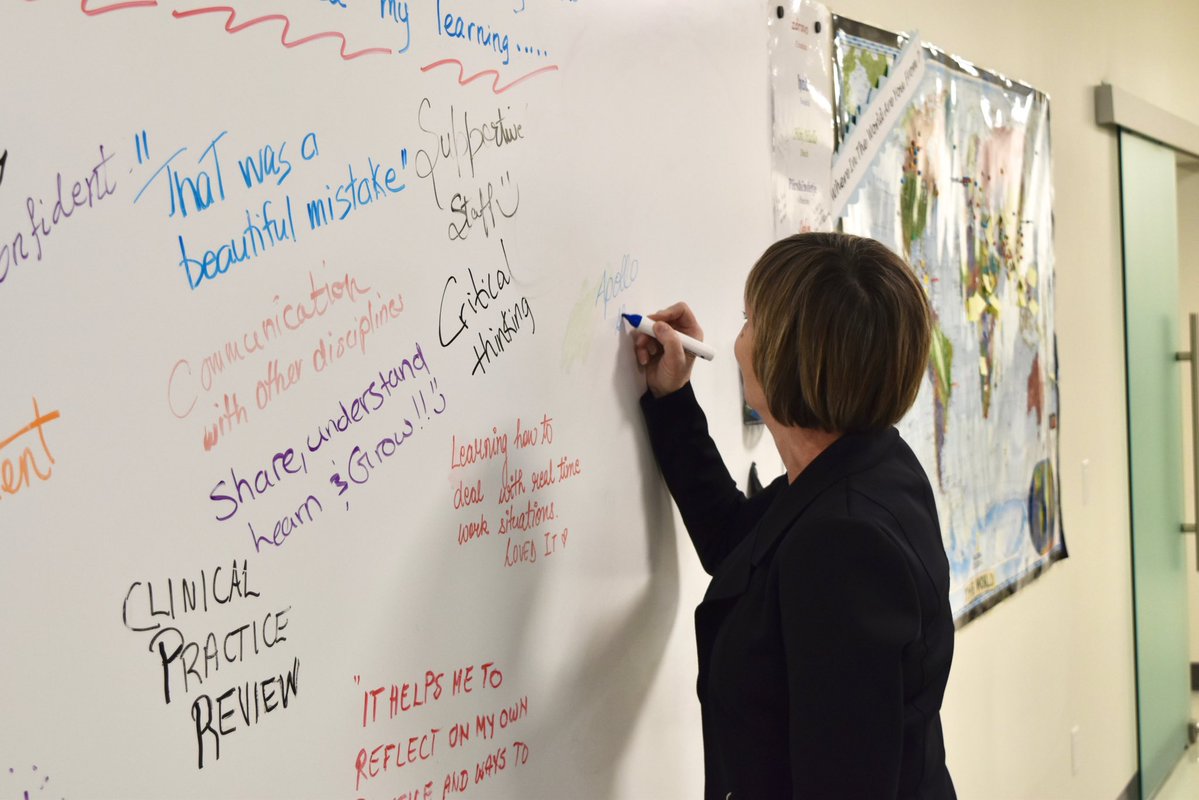 my learning.....
onfident."
"That was a
beautiful mistake"
Supportive
Staff
Critical
thinking
Apollo
Communication
with other disciplines
Share, understand
Learn & Grow!!!
ent
Learning how to
deal with real time
work situations.
LOVED IT ♡
CLINICAL
PRACTICE
REVIEW
"IT HELPS ME TO
REFLECT ON MY OWN
AND WAYS TO
Where In The World Are You From?
THE WORLD